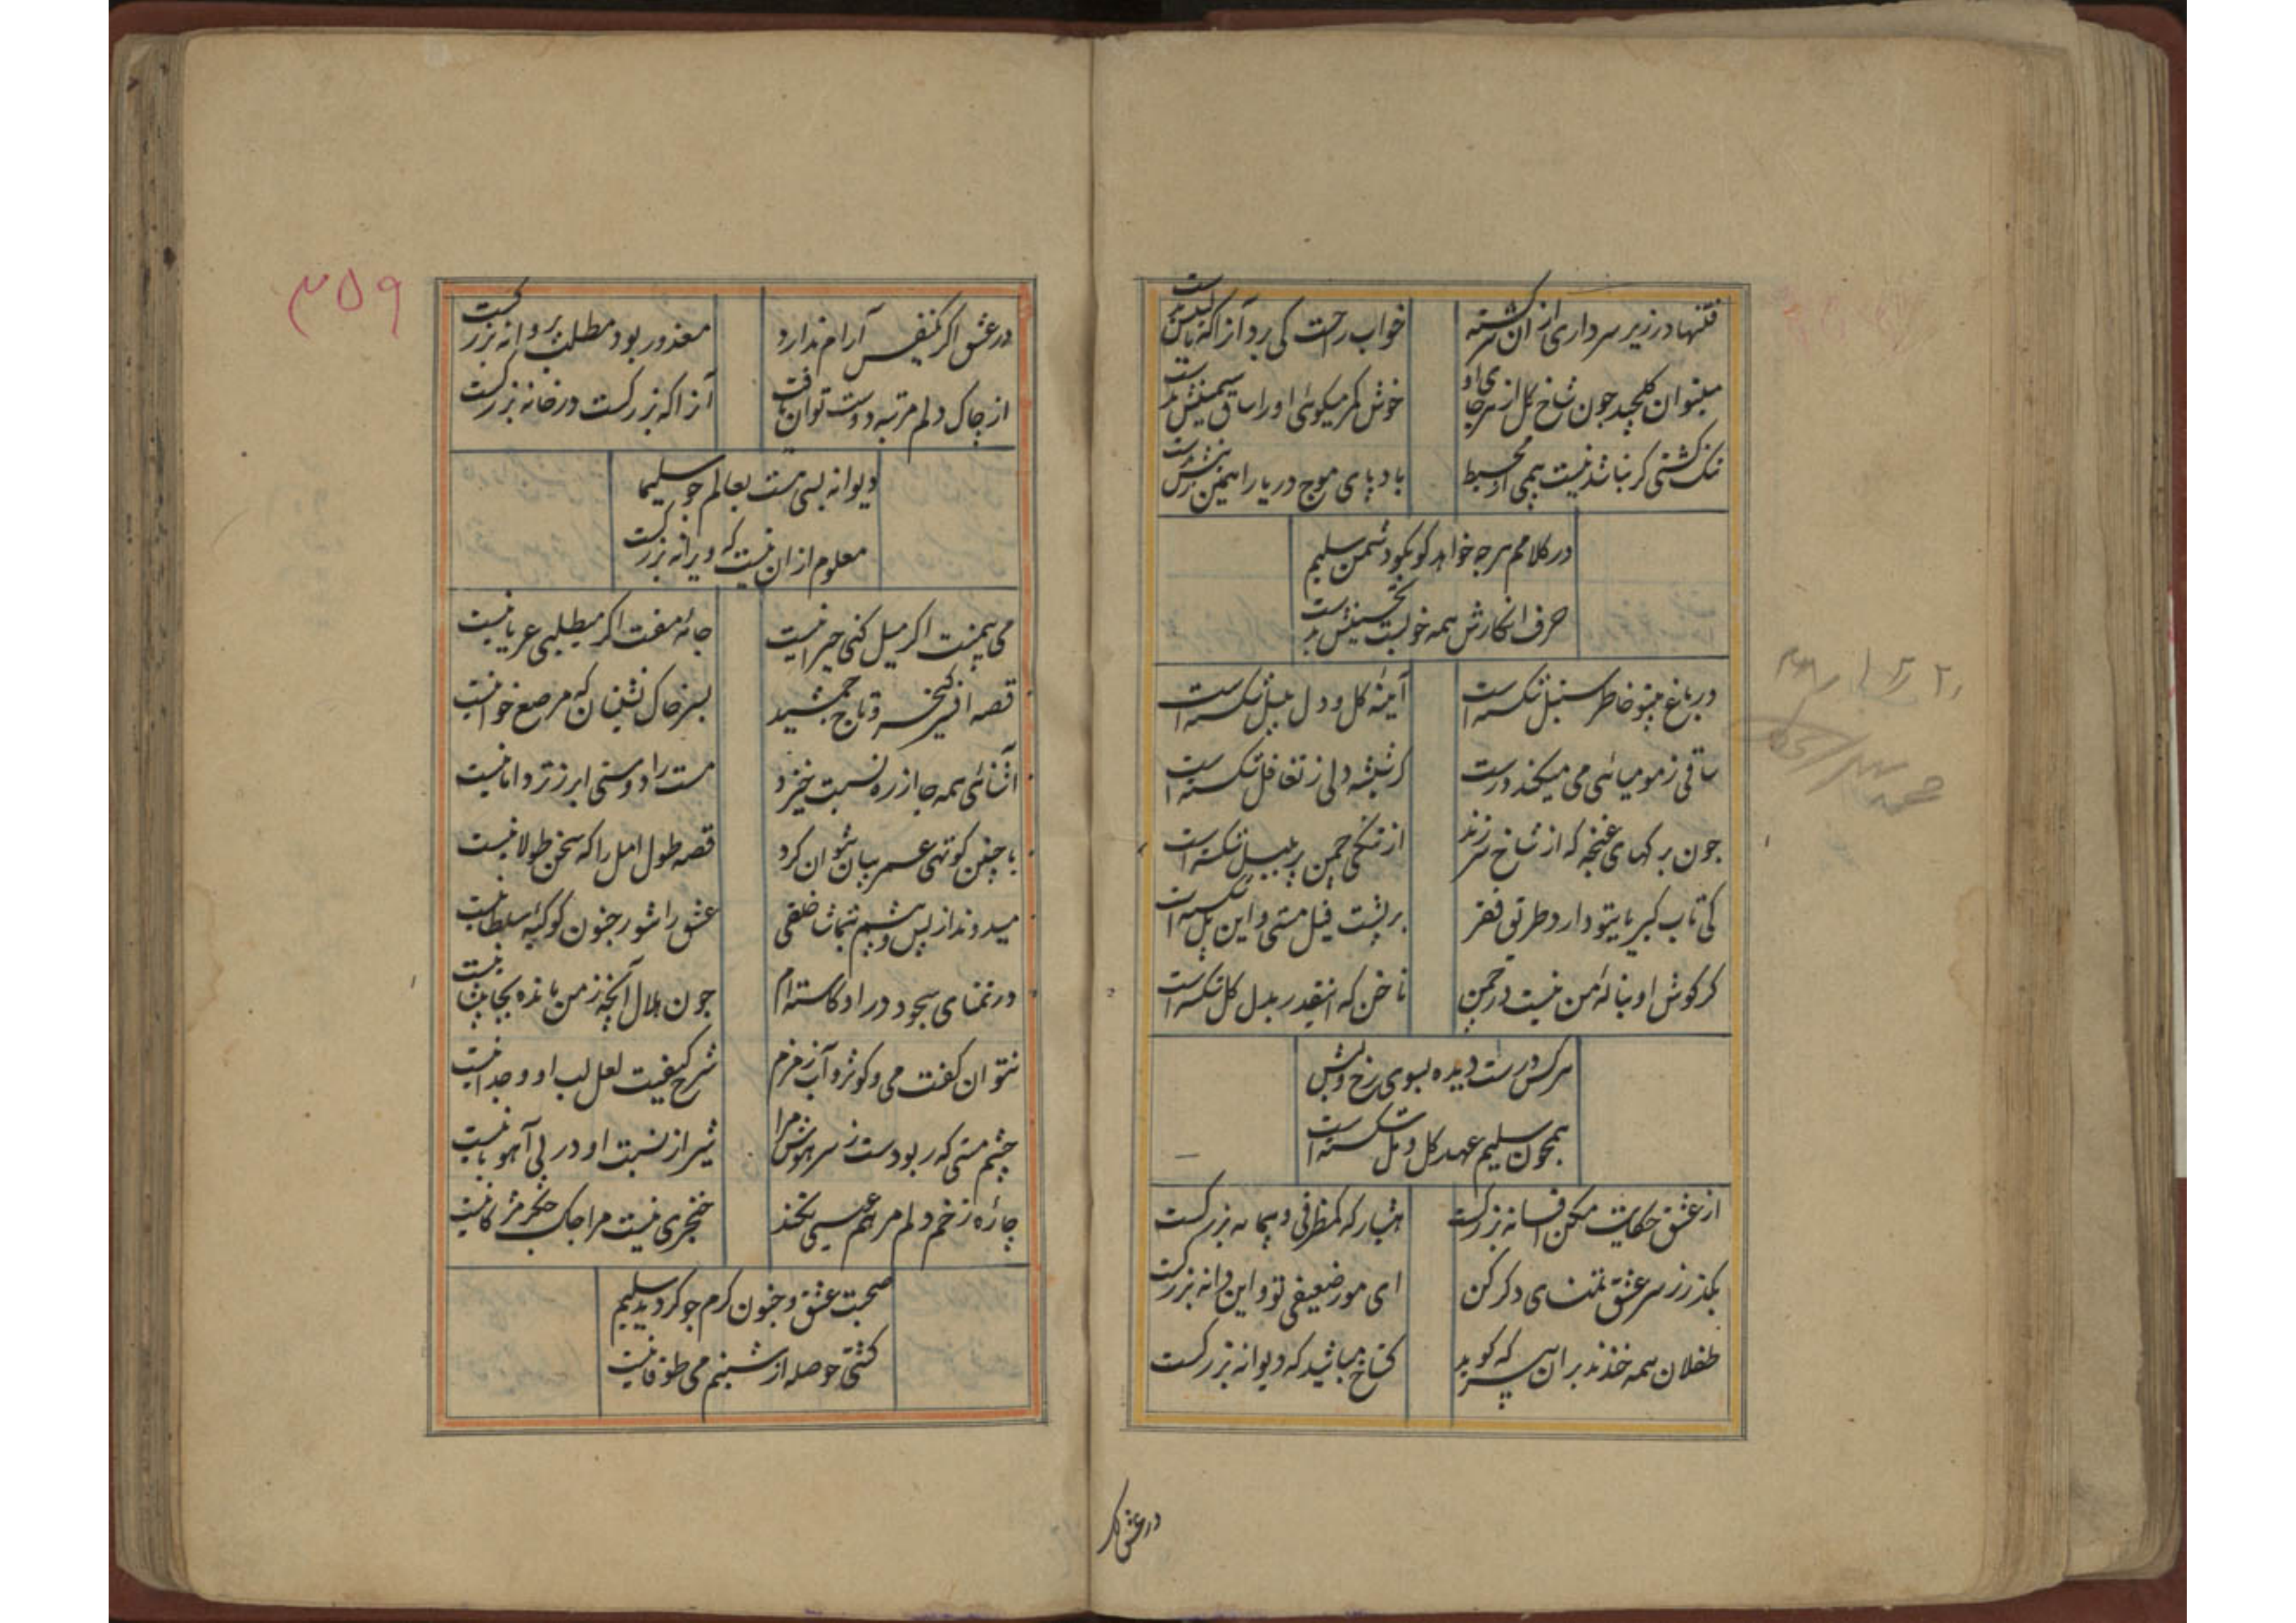 فتنها در زیر سر داری از آن سرکشته
خواب راحت کی برد آنرا که بالین
میتوان گلچید چون شاخ گل از هر جای او
خوش کمر میکوئی او را ساق سیمینش
کشتی گر نباشد نیست بیمی از محیط
باد پای موج دریا را همین
در کلامم هرچه خواهد گو بگو دشمن سلیم
حرف انکارش همه خوبست تحسینش بد است
در باغ بیتو خاطر سنبل شکسته است
آینه گل و دل بلبل شکسته است
ساقی ز مومیائی می میکند درست
گر شیشه دلی ز تغافل شکسته است
چون برگهای غنچه که از شاخ سر زند
از تنگی چمن پر بلبل شکسته است
کی تاب کبریای تو دارد طریق فقر
بر پشت فیل مستی و این پل شکسته است
گر گوش او بناله من نیست در چمن
ناخن که اینقدر بدل گل شکسته است
هر کس درست دیده بسوی رخ و لبش
همچون سلیم عهد گل و مل شکسته است
از عشق حکایت مکن افسانه بزرگست
هشیار که کمظرفی و پیمانه بزرگست
بگذر ز سر عشق تمنای دگر کن
ای مور ضعیفی تو و این دانه بزرگست
طفلان همه خندند بر آن پیر که گوید
گستاخ مباشید که دیوانه بزرگست
در عشق اگر
۳۵۹
در عشق اگر یکنفس آرام ندارد
معذور بود مطلب پروانه بزرگست
از چاک دلم مرتبه دوست توان یافت
آنرا که بزرگست در خانه بزرگست
دیوانه بسی هست بعالم چو سلیما
معلوم از آن نیست که ویرانه بزرگست
می بیمنت اگر میل کنی حیرانیست
جامه مفت اگر میطلبی عریانیست
قصه افسر کیخسرو تاج جمشید
بسر خاک نشینان که مرصع خوانیست
آشنائی همه جا از ره نسبت خیزد
مست را دوستی ابر ز تر دامانیست
با چنین کوتهی عمر بیان نتوان کرد
قصه طول امل را که سخن طولانیست
میدوند از پس و پیشم بتماشا خلقی
عشق را شور جنون کوکبه سلطانیست
در تمنای سجود در او کاسته ام
چون هلال آنچه ز من مانده بجا پیشانیست
نتوان گفت می و کوثر و آب زمزم
شرح کیفیت لعل لب او وجدانیست
چشم مستی که ربودست ز سر هوش مرا
شیر از نسبت او در پی آهو بانیست
چاره زخم دلم مرهم عیسی نکند
خنجری نیست مرا چاک جگر مژگانیست
صحبت عشق و جنون گرم چو گردید سلیم
کشتی حوصله از شبنم می طوفانیست